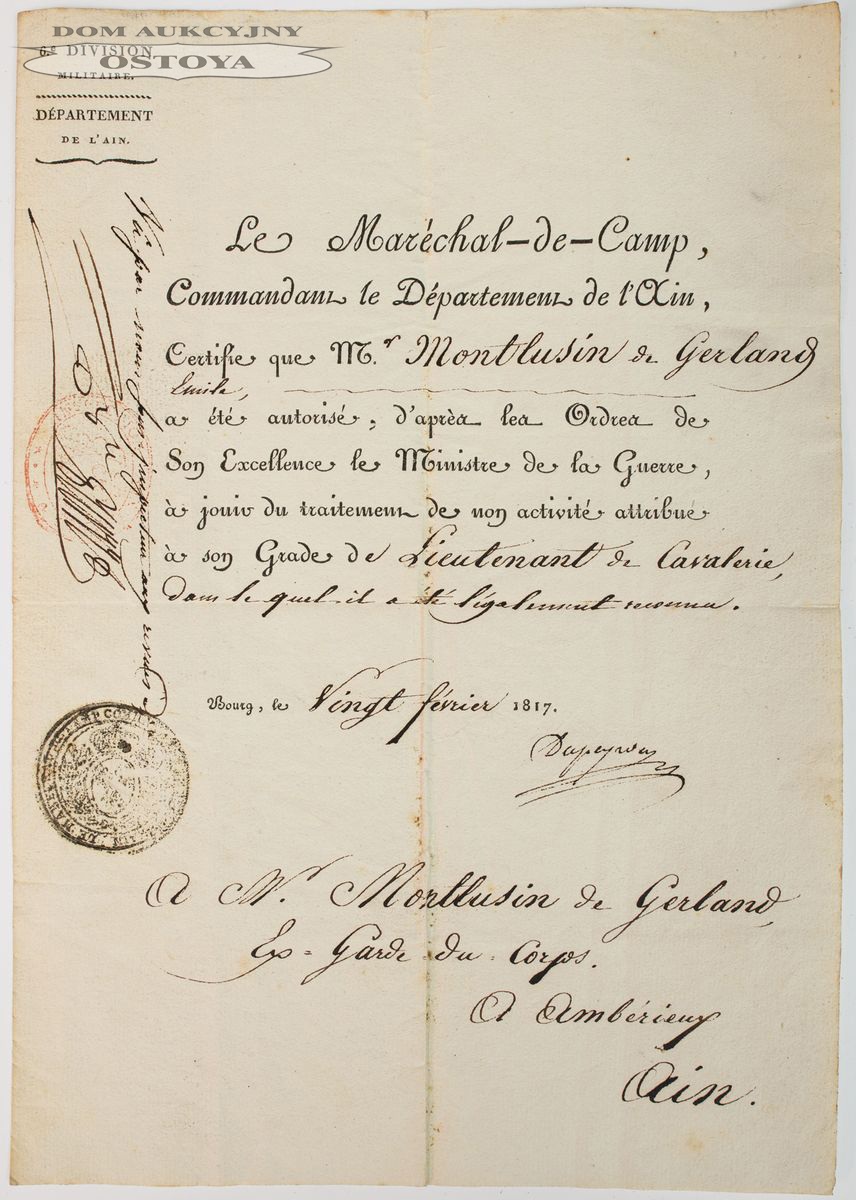 DOM AUKCYJNY
OSTOYA
6.e DIVISION
MILITAIRE.
DÉPARTEMENT
DE L'AIN.
Le Maréchal-de-Camp,
Commandant le Département de l'Ain,
Certifie que M.r Montlusin de Gerland
Emile,
a été autorisé, d'après les Ordres de
Son Excellence le Ministre de la Guerre,
à jouir du traitement de non activité attribué
à son Grade de Lieutenant de Cavalerie,
dans le quel il a été légalement reconnu.
Bourg, le Vingt février 1817.
A M.r Montlusin de Gerland,
Ex-Garde du Corps.
A Ambérieux
Ain.
Vu par nous Sous Inspecteur aux revues